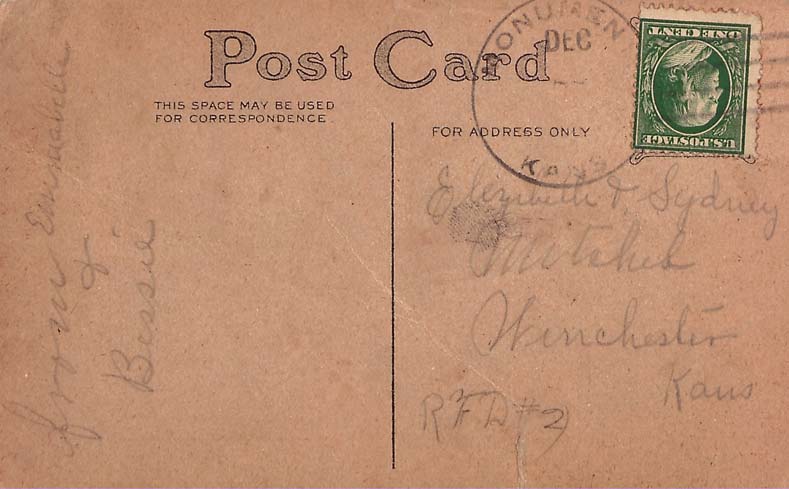 Post Card
THIS SPACE MAY BE USED
FOR CORRESPONDENCE
FOR ADDRESS ONLY
MONUMEN
DEC
KANS
U.S. POSTAGE
ONE CENT
Elezibeth & Sydney
Winchester
Kans
RFD #2
from
&
Bessie